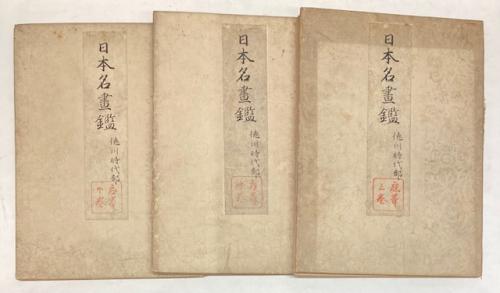 日本名畫鑑
徳川時代部
下巻
日本名畫鑑
徳川時代部
日本名畫鑑
徳川時代部
上巻